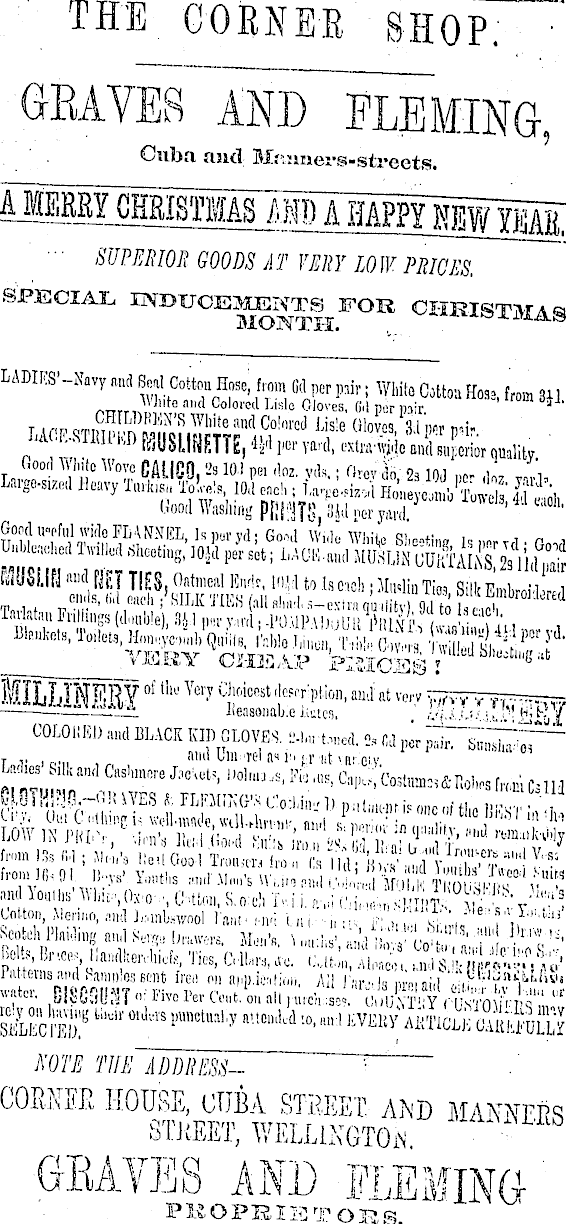 THE CORNER SHOP.
GRAVES AND FLEMING,
Cuba and Manners-streets.
A MERRY CHRISTMAS AND A HAPPY NEW YEAR.
SUPERIOR GOODS AT VERY LOW PRICES.
SPECIAL INDUCEMENTS FOR CHRISTMAS
MONTH.
LADIES'—Navy and Seal Cotton Hose, from 6d per pair; White Cotton Hose, from 3½d.
White and Colored Lisle Gloves, 6d per pair.
CHILDREN'S White and Colored Lisle Gloves, 3d per pair.
LACE-STRIPED MUSLINETTE, 4½d per yard, extra-wide and superior quality.
Good White Wove CALICO, 2s 10d per doz. yds.; Grey do, 2s 10d per doz. yards.
Large-sized Heavy Turkish Towels, 10d each; Large-sized Honeycomb Towels, 4d each.
Good Washing PRINTS, 3½d per yard.
Good useful wide FLANNEL, 1s per yd; Good Wide White Sheeting, 1s per yd; Good
Unbleached Twilled Sheeting, 10½d per set; LACE and MUSLIN CURTAINS, 2s 11d pair
MUSLIN and NET TIES, Oatmeal Ends, 10½d to 1s each; Muslin Ties, Silk Embroidered
ends, 6d each; SILK TIES (all shades—extra quality), 9d to 1s each.
Tarlatan Frillings (double), 3½d per yard; POMPADOUR PRINTS (washing) 4½d per yd.
Blankets, Toilets, Honeycomb Quilts, Table Linen, Table Covers, Twilled Sheeting at
VERY CHEAP PRICES!
MILLINERY of the Very Choicest description, and at very MILLINERY
Reasonable Rates.
COLORED and BLACK KID GLOVES, 2-buttoned, 2s 6d per pair. Sunshades
and Umbrellas in great variety.
Ladies' Silk and Cashmere Jackets, Dolmans, Fichus, Capes, Costumes & Robes from 6s 11d
CLOTHING.—GRAVES & FLEMING'S Clothing Department is one of the BEST in the
City. Our Clothing is well-made, well-shrunk, and superior in quality, and remarkably
LOW IN PRICE, Men's Real Good Suits from 28s 6d, Real Good Trousers and Vest
from 13s 6d; Men's Real Good Trousers from 6s 11d; Boys' and Youths' Tweed Suits
from 16s 9d Boys' Youths and Men's White and Colored MOLE TROUSERS. Men's
and Youths' White, Oxford, Cotton, Scotch Twill, and Crimean SHIRTS. Men's & Youths'
Cotton, Merino, and Lambswool Pants and Shirts, and Drawers,
Scotch Plaiding and Serge Drawers. Men's, Youths', and Boys' Cotton and Merino Sox,
Belts, Braces, Handkerchiefs, Ties, Collars, &c. Cotton, Alpaca, and Silk UMBRELLAS.
Patterns and Samples sent free on application. All Parcels prepaid either by land or
water. DISCOUNT of Five Per Cent. on all purchases. COUNTRY CUSTOMERS may
rely on having their orders punctually attended to, and EVERY ARTICLE CAREFULLY
SELECTED.
NOTE THE ADDRESS—
CORNER HOUSE, CUBA STREET AND MANNERS
STREET, WELLINGTON.
GRAVES AND FLEMING
PROPRIETORS.